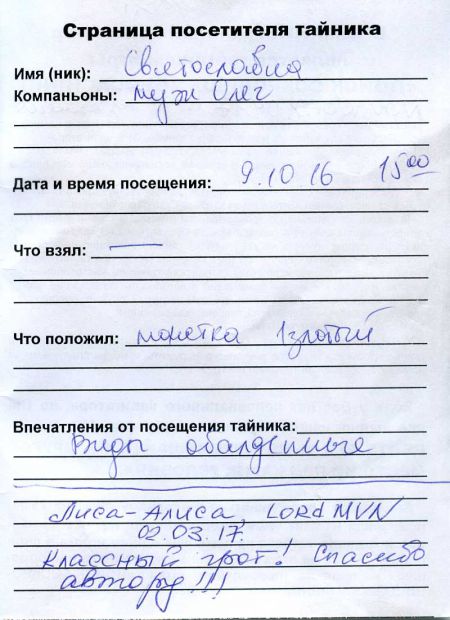 Страница посетителя тайника
Имя (ник): Святославна
Компаньоны: муж Олег
Дата и время посещения: 9.10.16 15 00
Что взял: —
Что положил: монетка 1 злотый
Впечатления от посещения тайника:
Виды обалденные
Лиса-Алиса, LORD MVN
02.03.17.
Классный грот! Спасибо
автору!!!